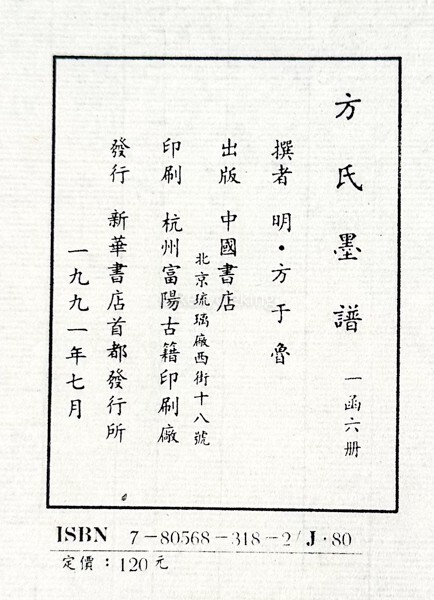 方氏墨譜 一函六册
撰者 明·方于魯
出版 中國書店
北京琉璃廠西街十八號
印刷 杭州富陽古籍印刷廠
發行 新華書店首都發行所
一九九一年七月
ISBN 7-80568-318-2/J·80
定價：120元